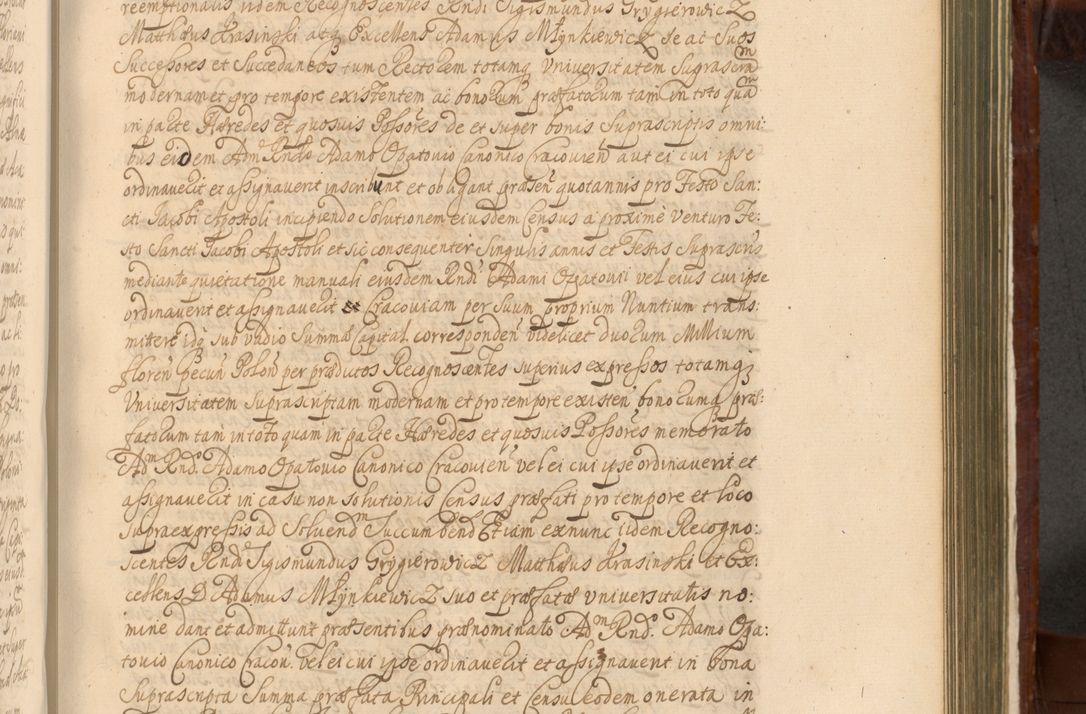 reemptionalis iidem Recognoscentes Rndi Sigismundus Grygierowicz
Matthæus Krasinski atq Excellens Adamus Młynkiewicz se ac suos
Successores et Succedaneos tum Rectorem totamq Universitatem Suprascram
modernam et pro tempore existentem ac bonorum præfatorum tam in toto quam
in parte Hæredes et quosuis Possores de et super bonis Suprascriptis omni:
bus eidem Adm Rndo Adamo Opatouio Canonico Cracovien aut ei cui ipse
ordinauerit et assignauerit inscribunt et obligant præsen quotannis pro Festo San:
cti Jacobi Apostoli incipiendo Solutionem eiusdem Census a proxime venturo Fe:
sto Sancti Jacobi Apostoli et sic consequenter singulis annis et Festis Suprascris
mediante quietatione manuali eiusdem Rndi Adami Opatouii vel eius cui ipse
ordinauerit et assignauerit Cracoviam per suum proprium Nuntium trans:
mittere idq sub vadio Summæ Capital corresponden videlicet duorum Millium
floren Pecun Polon per præductos Recognoscentes superius expressos totamq
Universitatem suprascriptam modernam et pro tempore existen bonorumq præ:
fatorum tam in toto quam in parte Hæredes et quosuis Possores memorato
Adm Rndo Adamo Opatouio Canonico Cracouien vel ei cui ipse ordinauerit et
assignauerit in casu non solutionis Census præfati pro tempore et loco
supraexpressis ad Soluendm Succumbend Etiam exnunc iidem Recogno:
scentes Rndi Sigismundus Grygierowicz Matthæus Krasinski et Ex:
cellens D Adamus Młynkiewicz suo et præfatæ universitatis no:
mine dant et admittunt præsentibus prænominato Adm Rndo Adamo Opa:
touio Canonico Cracou vel ei cui ipse ordinauerit et assignauerit in bona
Suprascripta Summa præfata Principali et Censu eodem onerata in